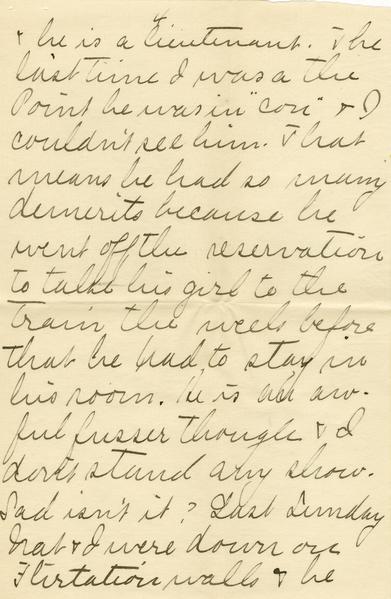 & he is a lieutenant. The
last time I was a the
Point he was in "con" & I
couldn't see him. That
means he had so many
demerits because he
went off the reservation
to take his girl to the
train the week before
that he had to stay in
his room. He is an aw-
ful fusser though & I
don't stand any show.
Sad isn't it? Last Sunday
Nat & I were down on
Flirtation walk & he